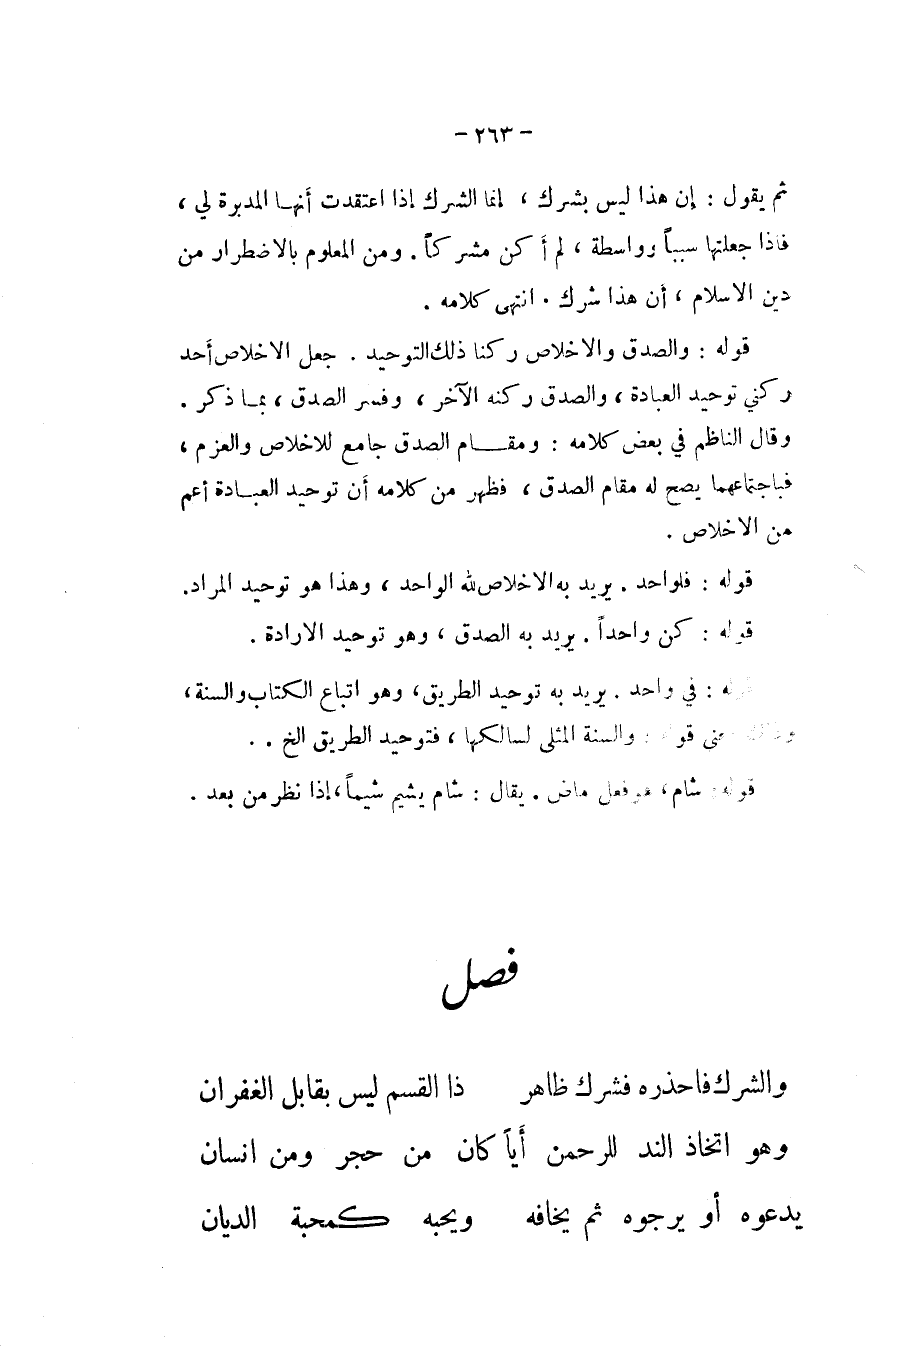 - ٢٦٣ -
ثم يقول : إن هذا ليس بشرك ، إنما الشرك إذا اعتقدت أنهـا المدبرة لي ،
فاذا جعلتها سبباً وواسطة ، لم أكن مشركاً . ومن المعلوم بالاضطرار من
دين الاسلام ، أن هذا شرك . انتهى كلامه .
قوله : والصدق والاخلاص ركنا ذلك التوحيد . جعل الاخلاص أحد
ركني توحيد العبادة ، والصدق ركنه الآخر ، وفسر الصدق ، بمـا ذكر .
وقال الناظم في بعض كلامه : ومقـــام الصدق جامع للاخلاص والعزم ،
فباجتماعهما يصح له مقام الصدق ، فظهر من كلامه أن توحيد العبـادة أعم
من الاخلاص .
قوله : فلواحد . يريد به الاخلاص لله الواحد ، وهذا هو توحيد المراد.
قوله : كن واحداً . يريد به الصدق ، وهو توحيد الارادة .
: في واحد . يريد به توحيد الطريق، وهو اتباع الكتاب والسنة،
قوله : والسنة المثلى لسالكها ، فتوحيد الطريق الخ . .
قوله: شام، هو فعل ماض . يقال : شام يشيم شيماً ،إذا نظر من بعد .
فصل
والشرك فاحذره فشرك ظاهر ذا القسم ليس بقابل الغفران
وهو اتخاذ الند للرحمن أياً كان من حجر ومن انسان
يدعوه أو يرجوه ثم يخافه ويحبه كمحبة الديان